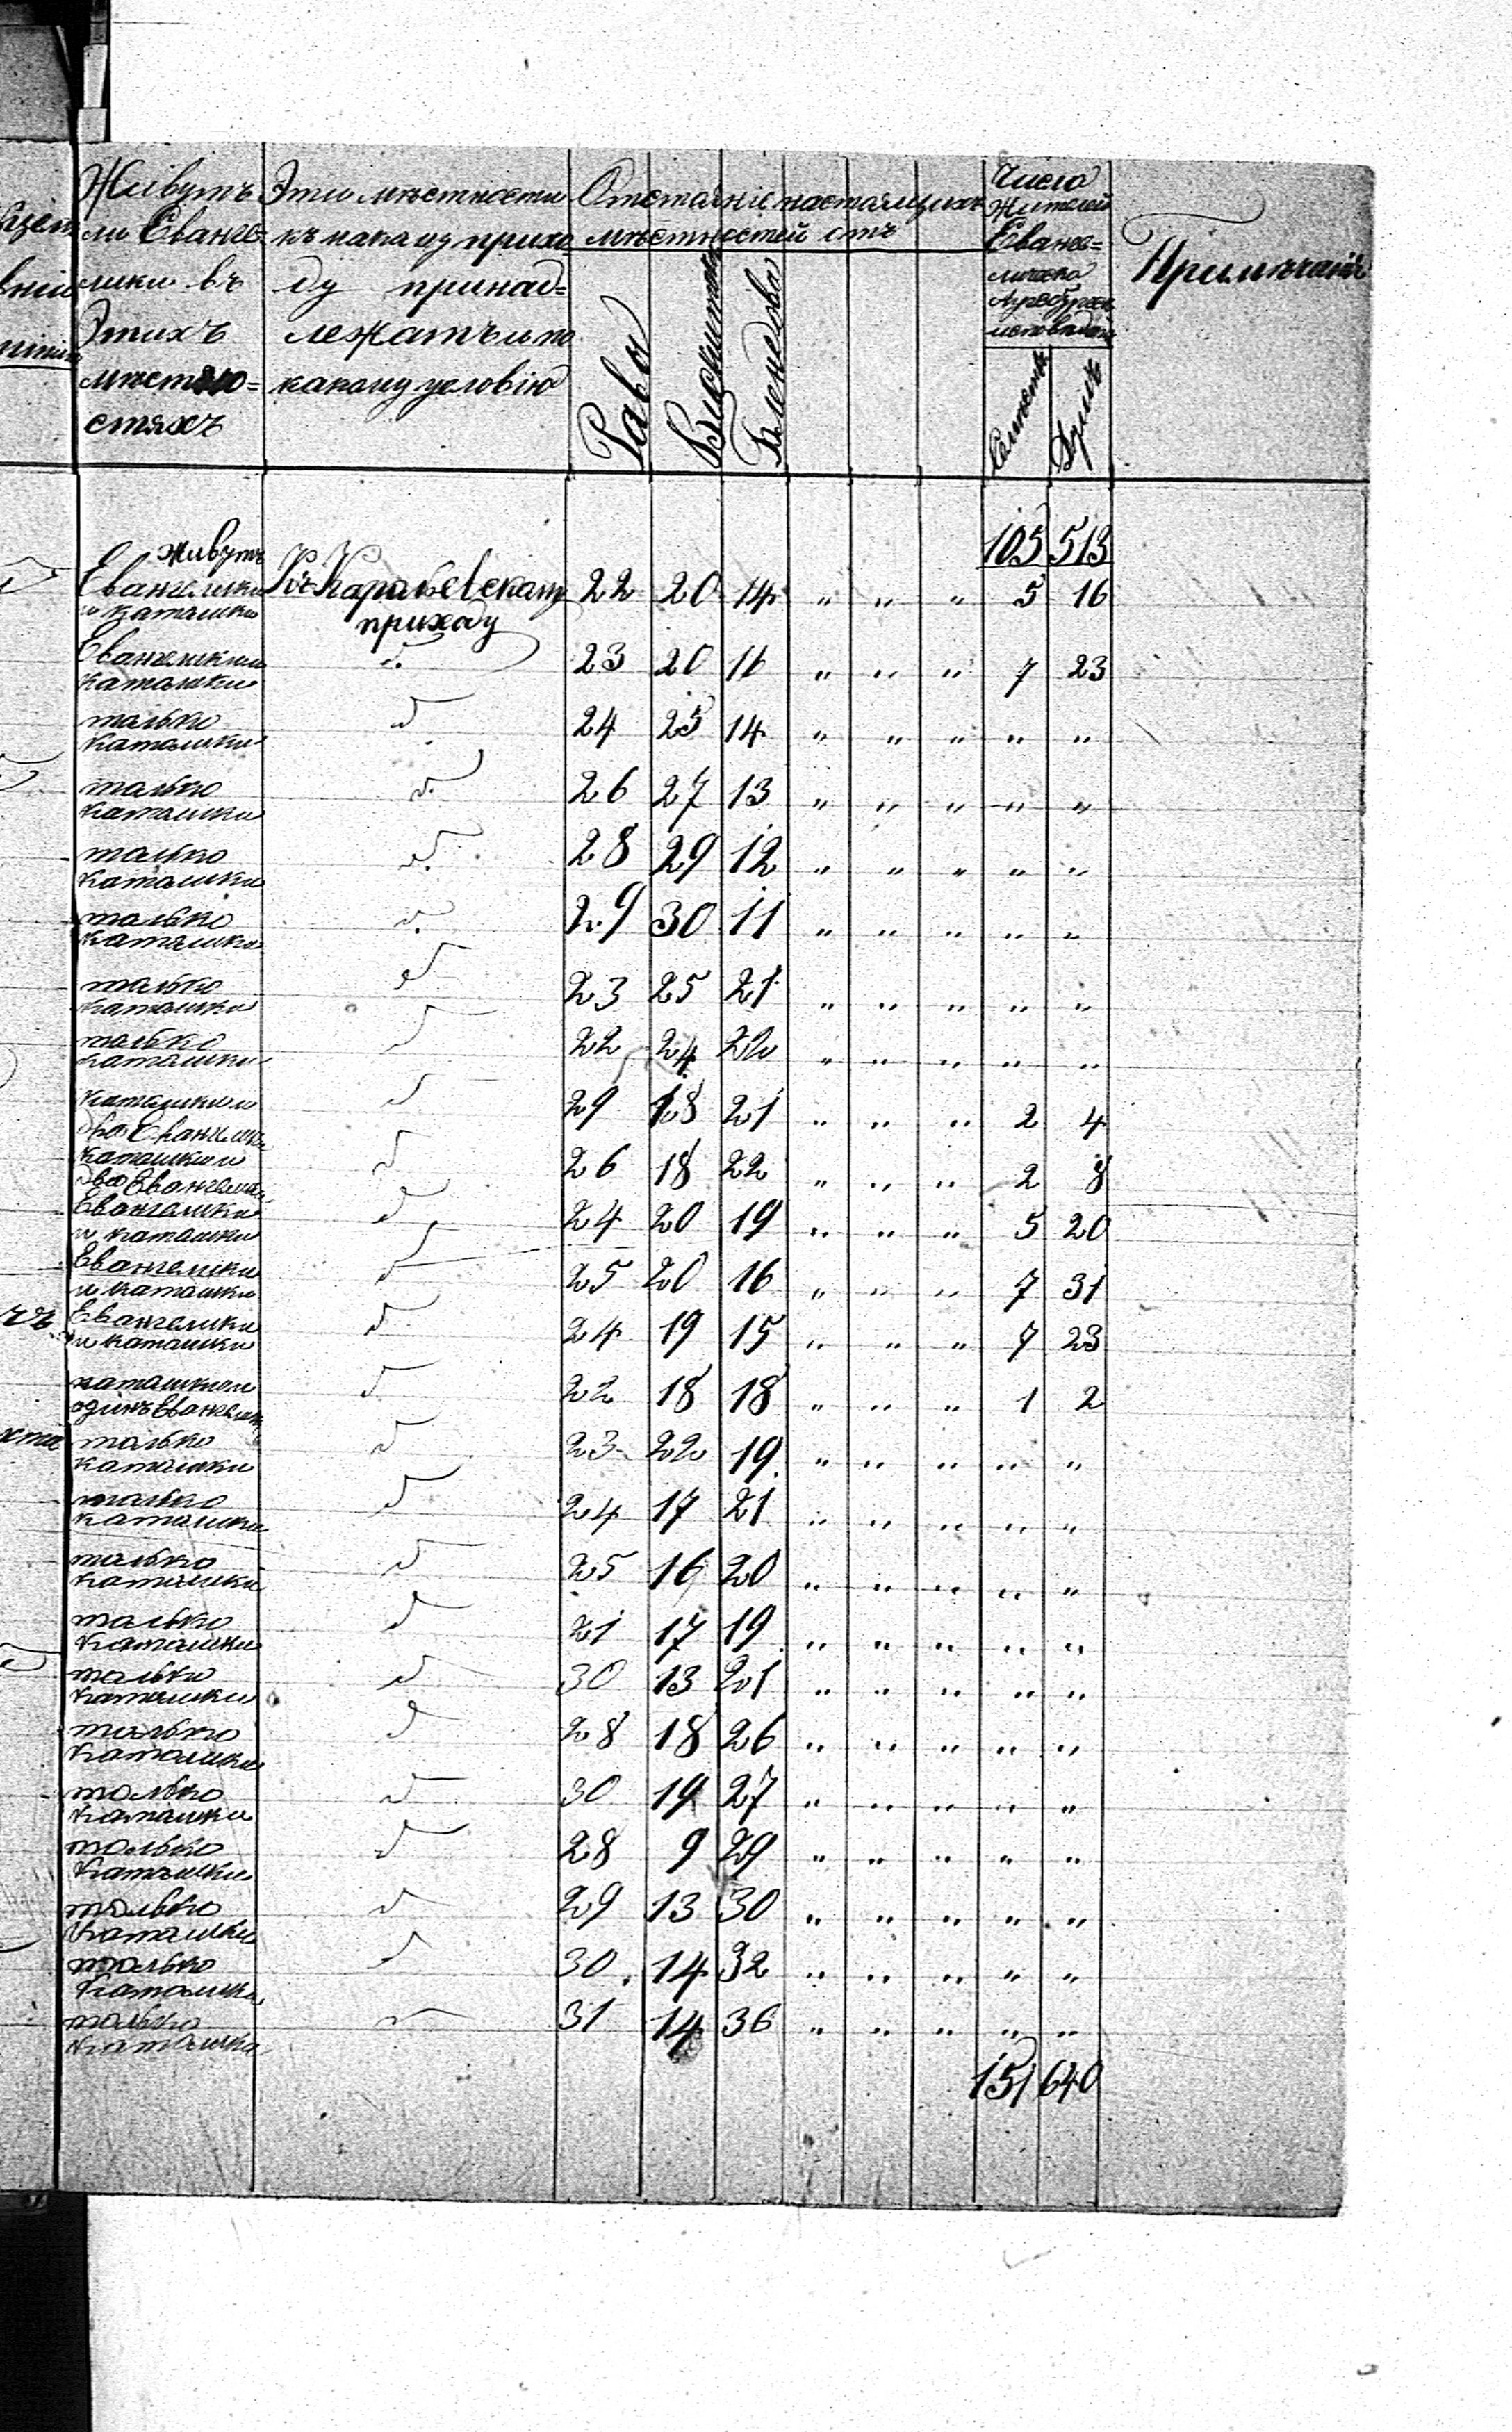 Живутъ Эти мѣстности Отстаяніе настоящихъ Число
ли Еванге- къ какому прихо мѣстностей отъ Жителей
лики въ ду принад= Еванге=
Этихъ лежатъ и по
мѣстно= какому условію
стяхъ
Примѣчанія
Рава Блендова
Семействъ Душъ
105 513
живутъ
Евангелики Къ Карабевскому 22 20 14 " " " 5 16
и католики приходу
Евангелики и d. 23 20 16 " " " 7 23
католики
только d 24 25 14 " " " " "
католики
только d. 26 27 13 " " " " "
католики
только d. 28 29 12 " " " " "
католики
только d. 29 30 11 " " " " "
католики
только d 23 25 21 " " " " "
католики
только d 22 24 22 " " " " "
католики
католики и d 29 18 21 " " " 2 4
два Евангелика
католики и d 26 18 22 " " " 2 8
два Евангелика
Евангелики d 24 20 19 " " " 5 20
и католики
Евангелики d 25 20 16 " " " 7 31
и католики
Евангелики d 24 19 15 " " " 7 23
и католики
католики и d 22 18 18 " " " 1 2
одинъ Евангелик
только d 23 22 19 " " " " "
католики
только d 24 17 21 " " " " "
католики
только d 25 16 20 " " " " "
католики
только d 21 17 19 " " " " "
католики
только d 30 13 21 " " " " "
католики
только d 28 18 26 " " " " "
католики
только d 30 19 27 " " " " "
католики
только d 28 9 29 " " " " "
католики
только d 29 13 30 " " " " "
католики
только d 30 14 32 " " " " "
католики
только 31 14 36 " " " " "
католики
151 640